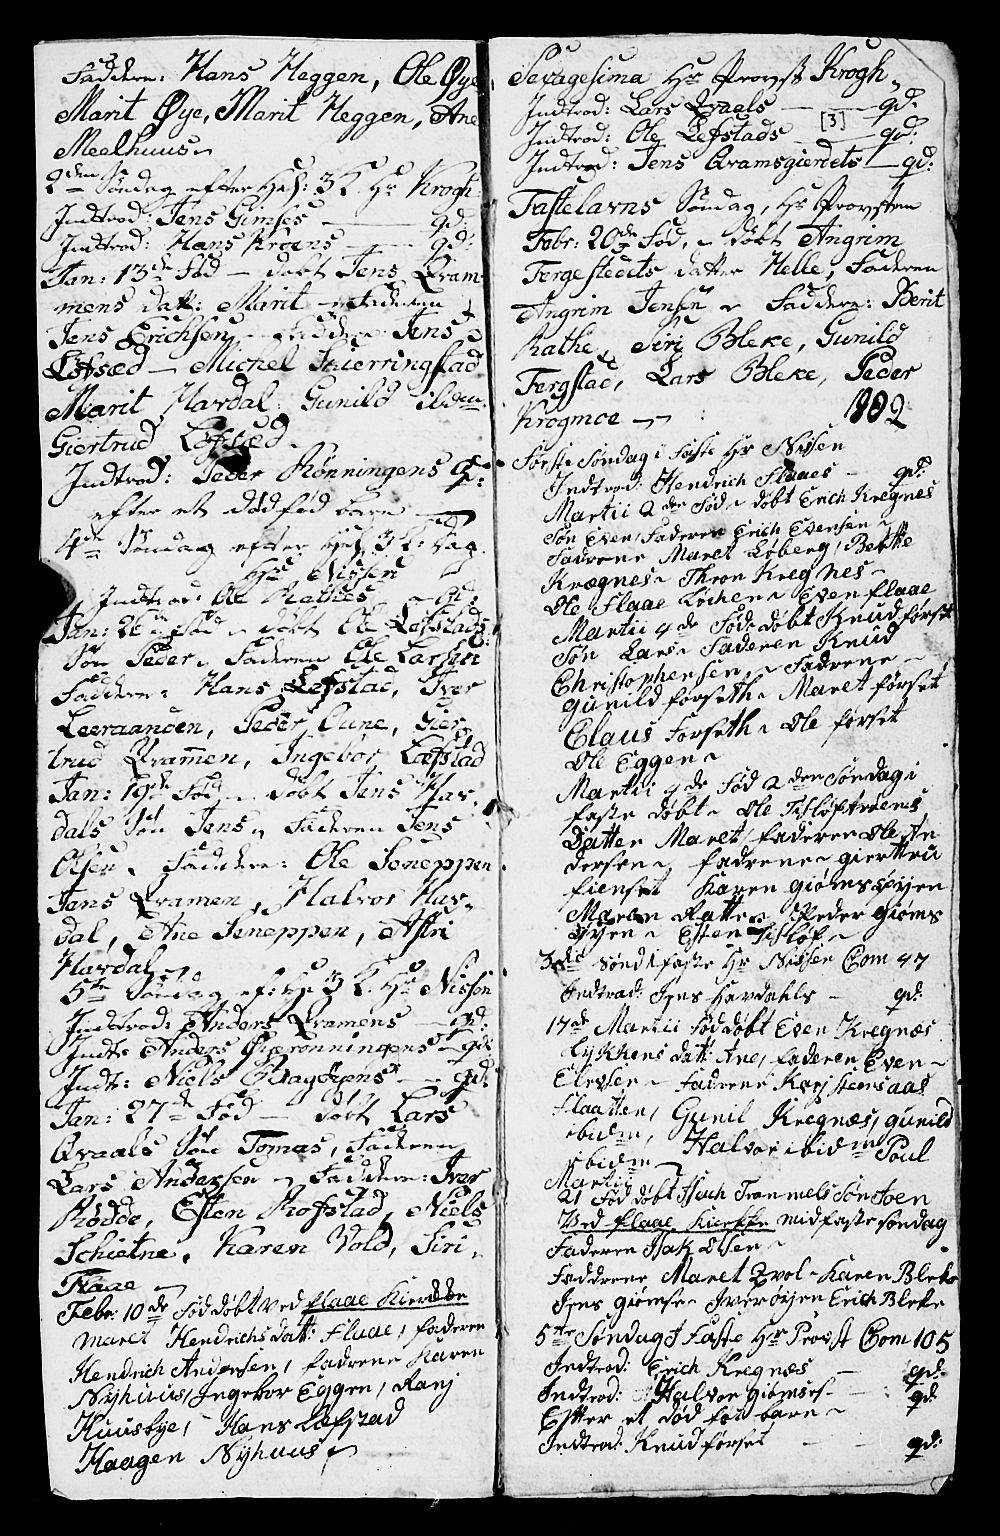 Faddere: Hans Heggen, Ole Øye
Marit Øye, Marit Heggen, Ane
Meelhuus
2den Søndag efter H: 3 K. Hr Krogh
Indtrod: Jens Gimses — qd:
Indtrod: Hans Kroens — qd:
Jan: 13de Fød — døbt Jens Qvam-
mens datt: Marit — Faderen
Jens Erichsen — Faddere Jens
Løfsæd — Michel Skierringstad
Marit Hardal Gunild ibdm
Giertrud Løfsæd
Indtrod: Peder Rønningens q:
efter et dødfød barn
4de Søndag efter H 3 K: Dag
Hr Nissen
Indtrod: Ole Rathes — qd:
Jan: 26 Fød — døbt Ole Lefstads
Søn Peder, Faderen Ole Larsen
Faddere: Hans Lefstad, Iver
Leeraanden, Peder Oune, Gier
trud Qvammen, Ingebor Løfstad
Jan: 19de Fød — døbt Jens Har
dals Søn Jens, Faderen Jens
Olsen, Faddere: Ole Seneppen
Jens Qvamen, Halvor Har-
dal, Ane Seneppen, Astri
Hardal
5te Søndag ef: H 3 K. Hr Nissen
Indtrod: Anders Qvamens — qd:
Indt: Anders Øyerønningens — qd:
Indt: Niels — qd:
Jan: 27de Fød — døbt Lars
Qvaals Søn Tomas, Faderen
Lars Andersen — Faddere: Iver
Rødde, Esten Rofstad, Niels
Schietne, Karen Vold, Siri
Flaae
Febr: 10de Fød døbt ved flaae Kierche
maret Hendrichsdatt: Flaae, faderen
Hendrich Andersen, fadrene Karen
Nyhuus, Ingebor Eggen, Ranj
Huusbye, Hans Løfstad
Haagen Nyhuus
Sexagesima Hr Provst Krogh
Indtrod: Lars Qvaals — qd:
[3]
Indtrod: Ole Lefstads — qd:
Indtrod: Jens Qvamsgierdets — qd:
Fastelavns Søndag, Hr Provsten
Febr: 20de Fød, døbt Angrim
Tergestedts datter Helle, Faderen
Angrim Jensen Faddere: Berit
Rathe, Siri Bleke, Gunild
Tergstad, Lars Bleke, Peder
Krogmoe — 1802
Første Søndag i Faste Hr Nissen
Indtrod: Hendrich Flaaes — qd:
Martii 2den Fød døbt Erich Kregnes
Søn Even, Faderen Erich Evensen
Fadrene Maret Løberg, Berthe
Krægnes Thron Kregnes
Ole Flaae Løchen Even flaae
Martii 4de Fød døbt Knud forset
Søn Lars Faderen Knud
Christophersen, Fadrene
Gunild forseth Maret forset
Claus Forseth Ole forset
Ole Eggen
Martii 9de Fød 2den Søndag i
faste døbt Ole Tisløftrøens
Datter Maret, faderen Ole An
dersen fadrene giertru
fienset Karen giømssøyen
Maren Ratte Peder giøms
øyen Esten Tisløf
3die Sønd i faste Hr Nissen Com 47
Indtrad: Jens Hardahls — qd:
17de Martii Fød døbt Even Kregnæs
lykkens datt: Ane, faderen Even
Elevsen Fadrene Karj steensaas
flaatten, Gunil Kregnæs, gunild
ibidm, Halvor ibidm Poul
ibidm
Martii
21 Fød døbt Isach Trammels Søn Joen
Ved flaae Kierkke midfaste søndag
Faderen Isak Olsen
Faddrene Maret Qvol Karen Bleke
Jens giømse Iver øyen Erich Bleke
5te Søndag I Faste Hr Provst Com 105
Indtrod: Erich Kregnæs — qd:
Indtrod: Halvor giømses — qd:
Efter et død fød barn
Indtrad: Knud forset — qd: